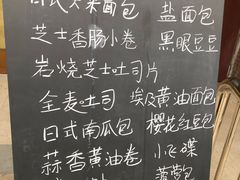 日式大米面包 盐面包
芝士香肠小卷 黑眼豆豆
岩烧芝士吐司片
全麦吐司 埃及黄油面包
日式南瓜包 樱花红豆包
蒜香黄油卷 小飞碟
菠萝包